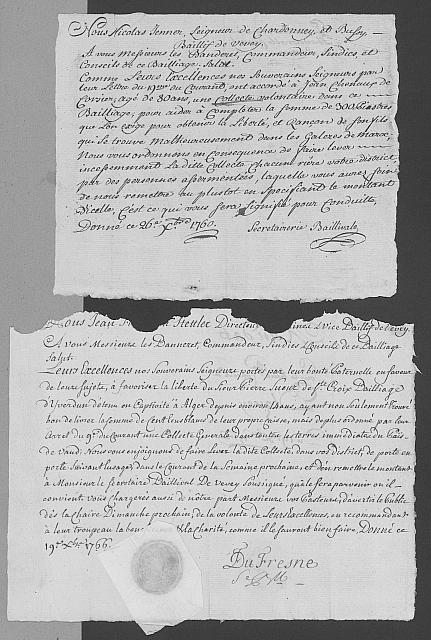 Nous Nicolas Jenner, Seigneur de Chardonney, et Bussy,
Baillif de Vevey.
A vous Messieurs les Banderet, Commandeur, Sindics, et
Conseils de ce Bailliage; Salut.
Comme Leurs Excellences nos Souverains Seigneurs par
leur Lettre du 19me du Courant, ont accordé à Jean
Corsier, agé de 80 ans, une Collecte volontaire dans ce
Bailliage, pour aider à completter la somme de 300 Piastres
que l'on exige pour obtenir la Liberté, et Rançon de son fils
qui se trouve Malheureusement dans les Galeres de Maroc;
Nous vous ordonnons en Consequence de faire lever
incessamment La ditte Collecte, chacun riere votre district,
par des personnes assermentées, laquelle vous aurés soin
de nous remettre au plustot en Specifiant le montant
D'icelle, C'est ce qui vous sera signifié pour Conduite,
Donné ce 26e Xbre 1760.
Secretairerie Baillivale,
Nous Jean Stettler Directeur Vice Baillif de Vevey.
A vous Messieurs les Banneret, Commandeur, Sindics & Conseils de ce Bailliage
Salut.
Leurs Excellences nos Souverains Seigneurs portés par leur bonté Paternelle en faveur
de leurs sujets, à favoriser la liberté du Sieur Pierre Sueur de Ste Croix Bailliage
d'Yverdun détenu en Captivité à Alger depuis environ 14 ans, ayant non seulement trouvé
bon de livrer la somme de Cent Louis blancs de leur propre caisse, mais de plus ordonné par leur
Arret du 9e du Courant une Collecte Generale dans toutes les terres immédiates du Païs
de Vaud: Nous vous enjoignons de faire lever la dite Collecte, dans vos district, de porte en
porte suivant l'usage, dans le Courant de la Semaine prochaine, et d'en remettre le montant
à Monsieur le Secretaire Baillival de Vevey Soussigné, qui le fera parvenir où il
convient. Vous chargerés aussi de notre part Messieurs vos Pasteurs, d'avertir le Public
dès la Chaire Dimanche prochain, de la volonté de Leurs Excellences, en recommandant
à leur troupeau la & la Charité, comme ils le sauront bien faire, Donné ce
19e Xbre 1766.
DuFresne